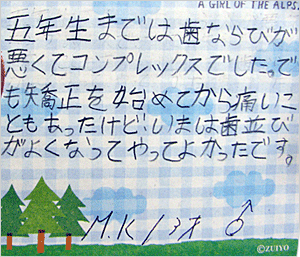 A GIRL OF THE ALPS.
五年生までは、歯ならびが
悪くてコンプレックスでした。で
も矯正を始めてから痛いこ
ともあったけど、いまは歯並び
がよくなってやってよかったです。
M.K 13才 ♂
©ZUIYO